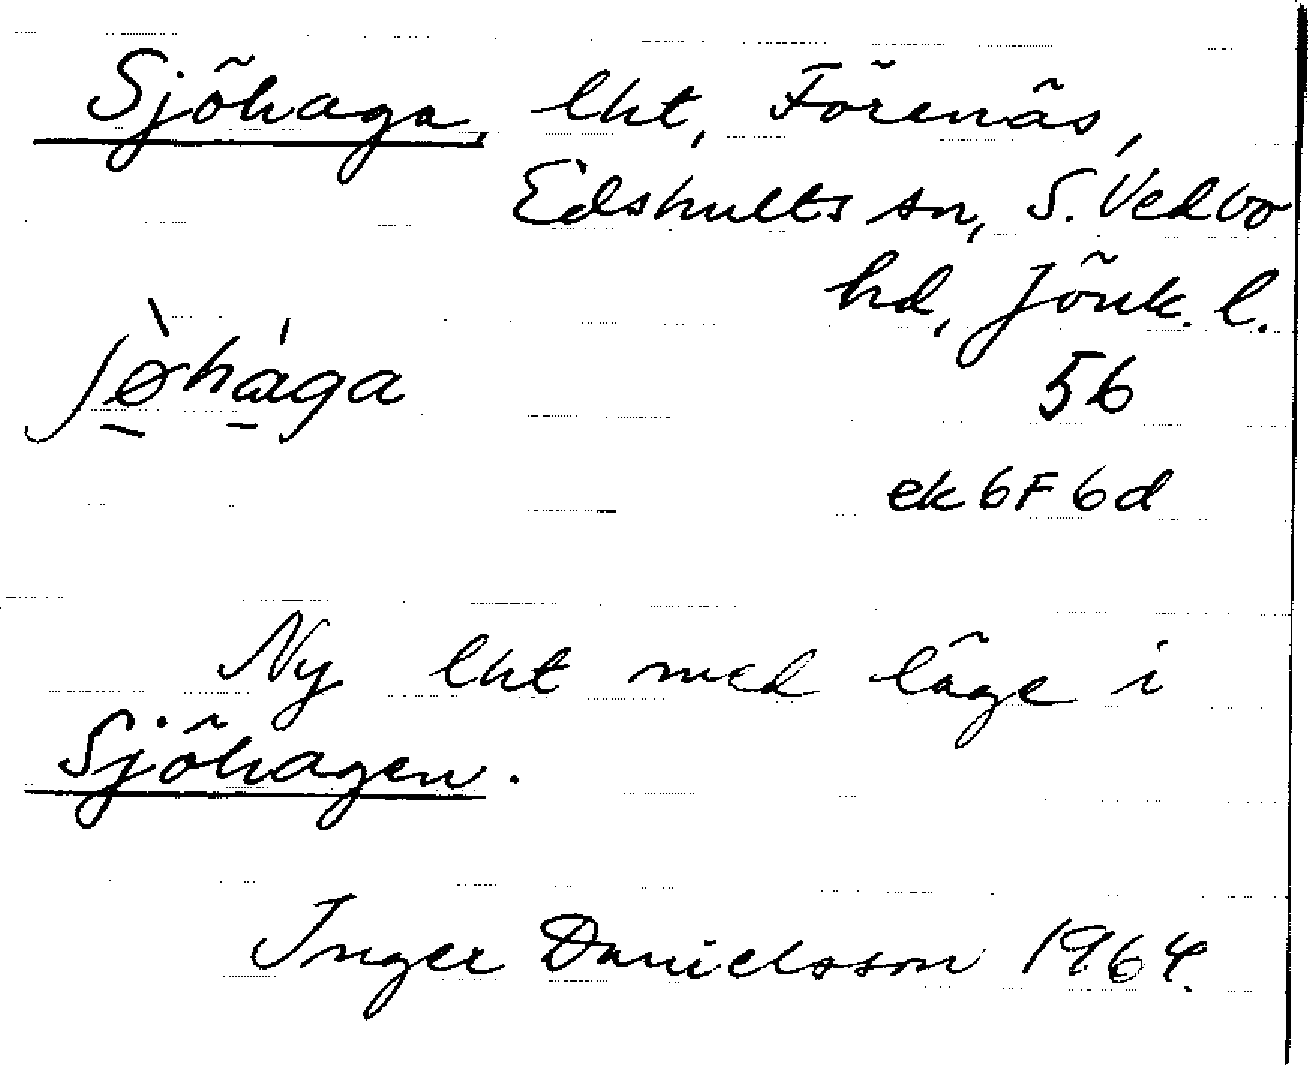 Sjöhaga, lht, Förenäs,
Edshults sn, S. Vedbo
hd, Jönk. l.
56
ek 6F 6d
Ny lht med läge i
Sjöhagen.
Inger Danielsson 1964.